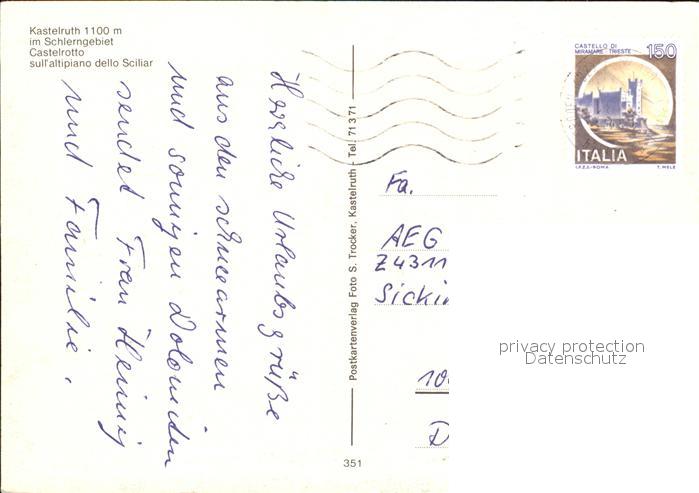 Kastelruth 1100 m
im Schlerngebiet
Castelrotto
sull'altipiano dello Sciliar
Herzliche Urlaubsgrüße
aus den schneearmen
und sonnigen Dolomiten
sendet Frau Hennig
und Familie.
Postkartenverlag Foto S. Trocker, Kastelruth - Tel. 71371
351
CASTELLO DI
MIRAMARE - TRIESTE
150
ITALIA
I.P.Z.S. - ROMA
T. MELE
Fa.
AEG
Z4311
Sickin
10
D
privacy protection
Datenschutz